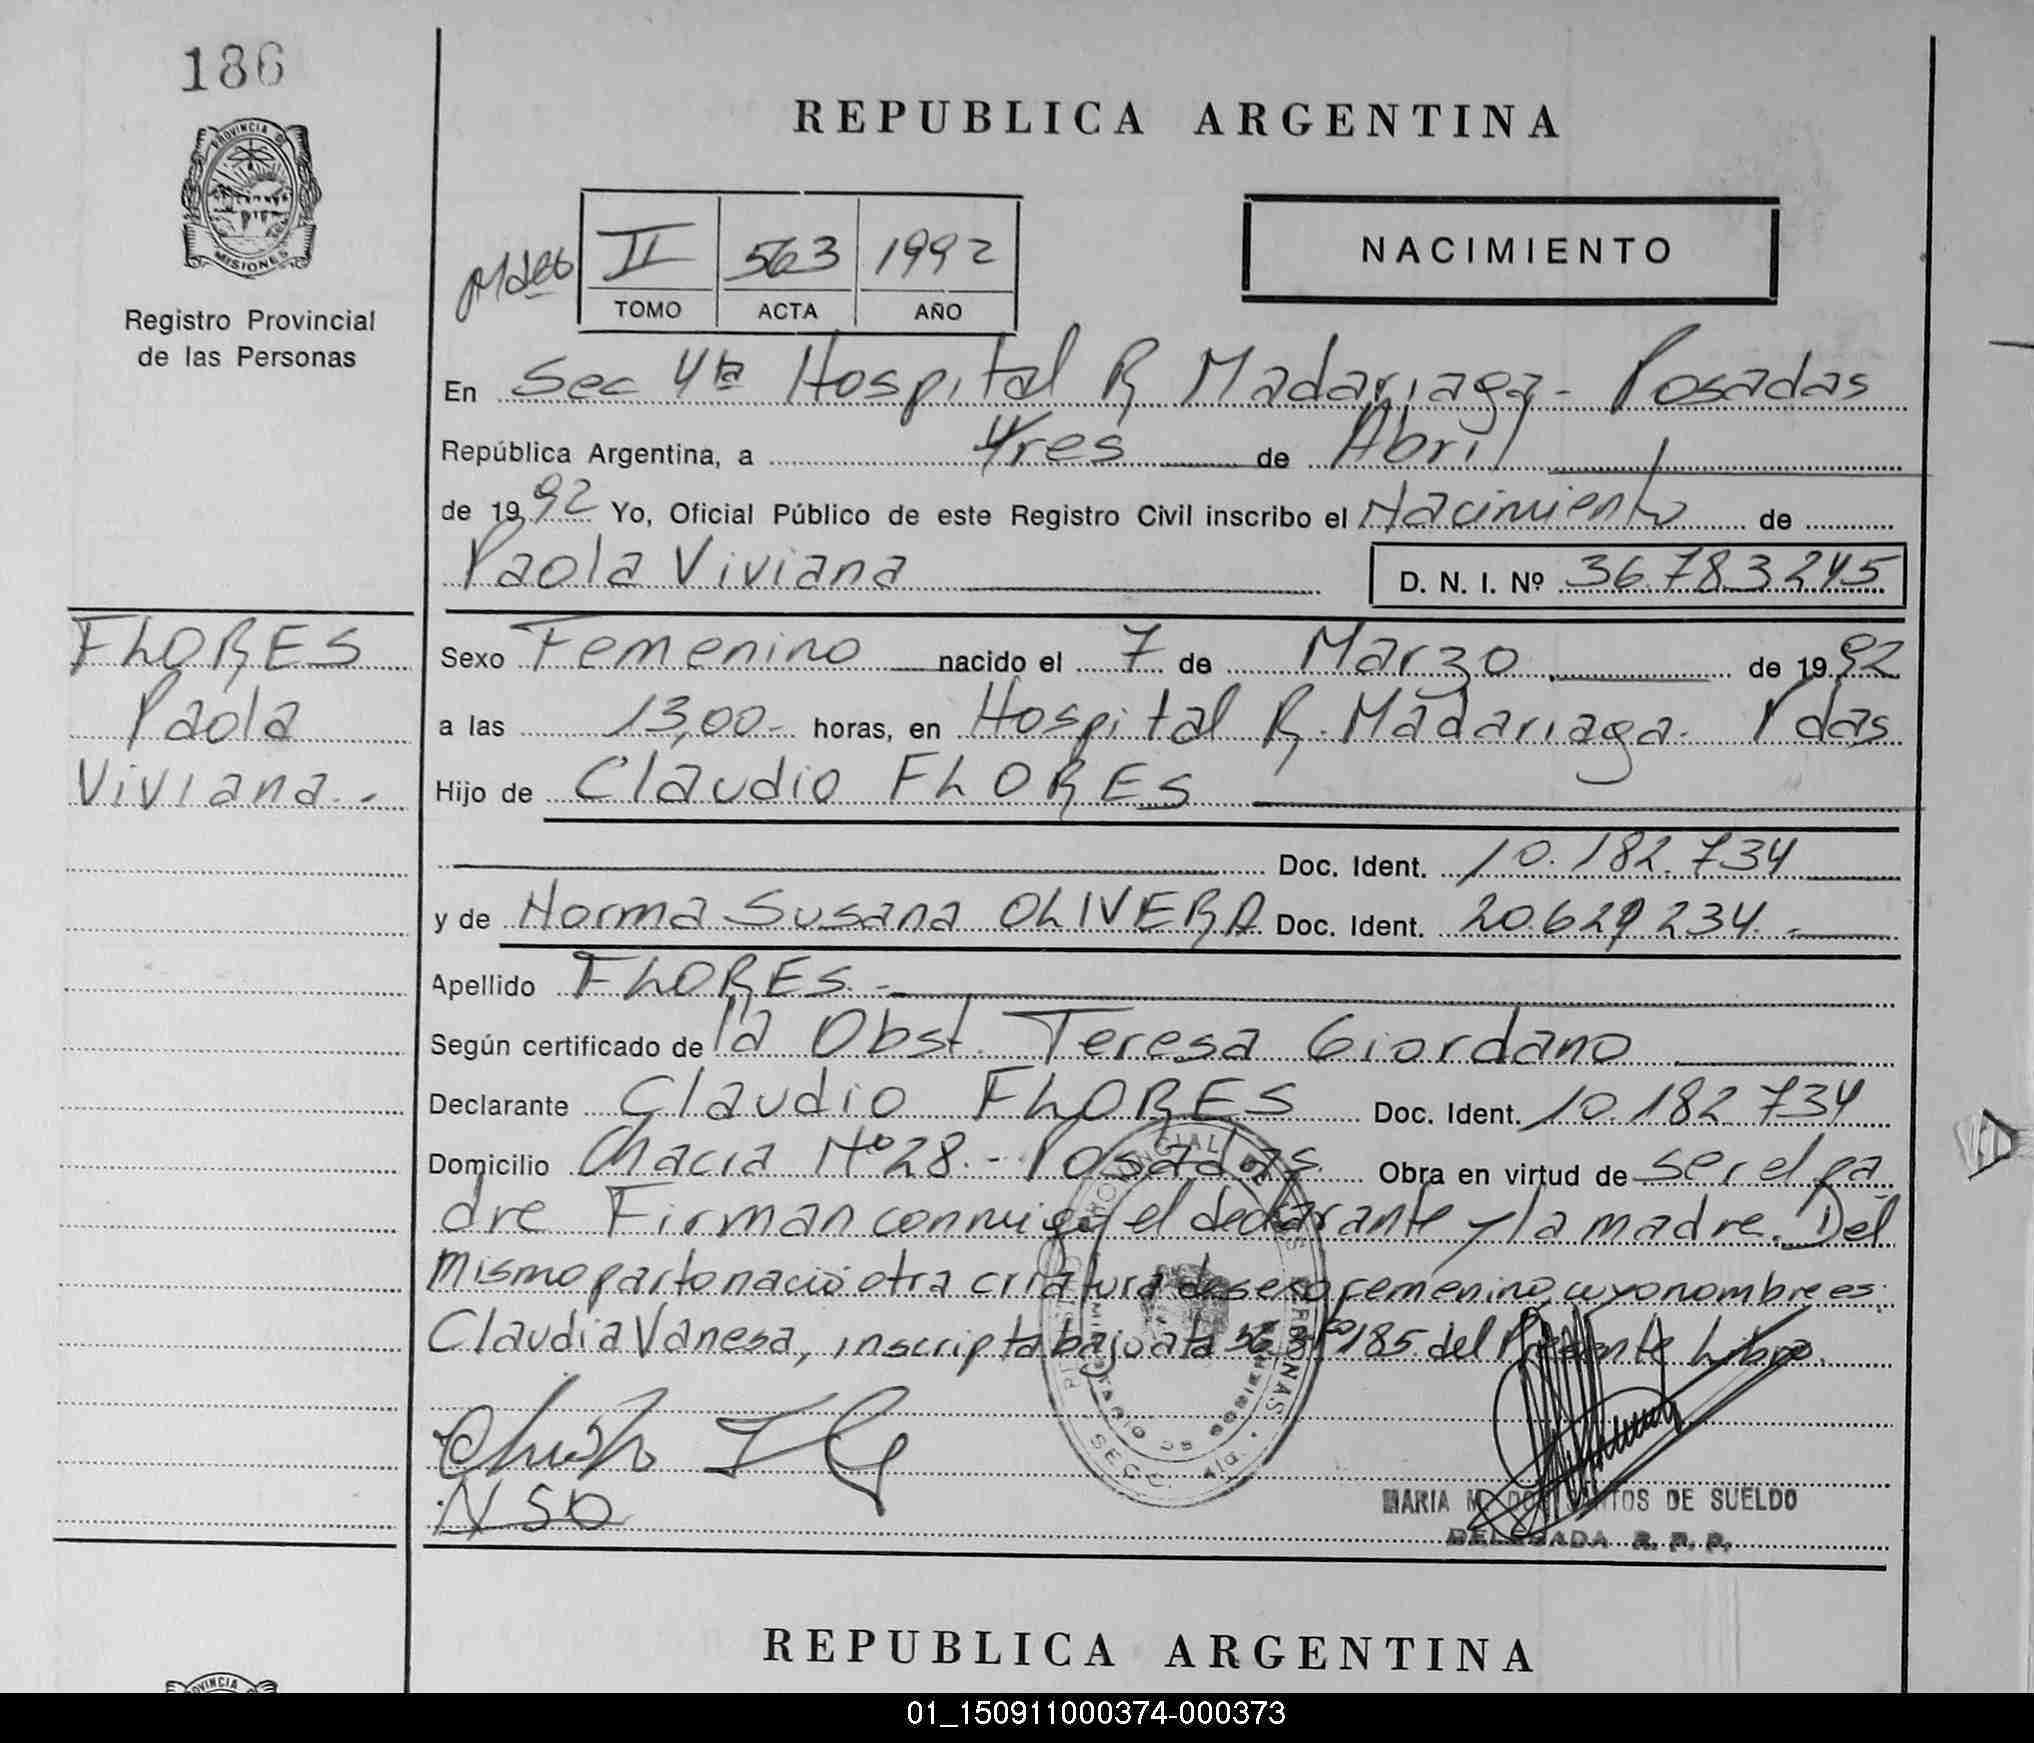 186
REPUBLICA ARGENTINA
PROVINCIA D
MISIONES
Registro Provincial
de las Personas
NACIMIENTO
II 563 1992
TOMO ACTA AÑO
En Sec 4ta Hospital R Madariaga - Posadas
República Argentina, a Tres de Abril
de 1992 Yo, Oficial Público de este Registro Civil inscribo el Nacimiento de
Paola Viviana D. N. I. Nº 36.783.245
FLORES
Paola
Viviana.-
Sexo Femenino nacido el 7 de Marzo de 1992
a las 13,00- horas, en Hospital R. Madariaga. Pdas
Hijo de Claudio FLORES
Doc. Ident. 10.182.734
y de Norma Susana OLIVERA Doc. Ident. 20.629.234.-
Apellido FLORES.-
Según certificado de la Obst. Teresa Giordano
Declarante Claudio FLORES Doc. Ident. 10.182.734
Domicilio Chacra Nº 28.- Posadas. Obra en virtud de ser el pa
dre Firman conmigo el declarante y la madre. Del
mismo parto nació otra criatura de sexo femenino, cuyo nombre es:
Claudia Vanesa, inscripta bajo ata Fº 185 del Presente Libro.
NSO
MARIA M. DOS SANTOS DE SUELDO
DELEGADA R. P. P.
REPUBLICA ARGENTINA
01_150911000374-000373